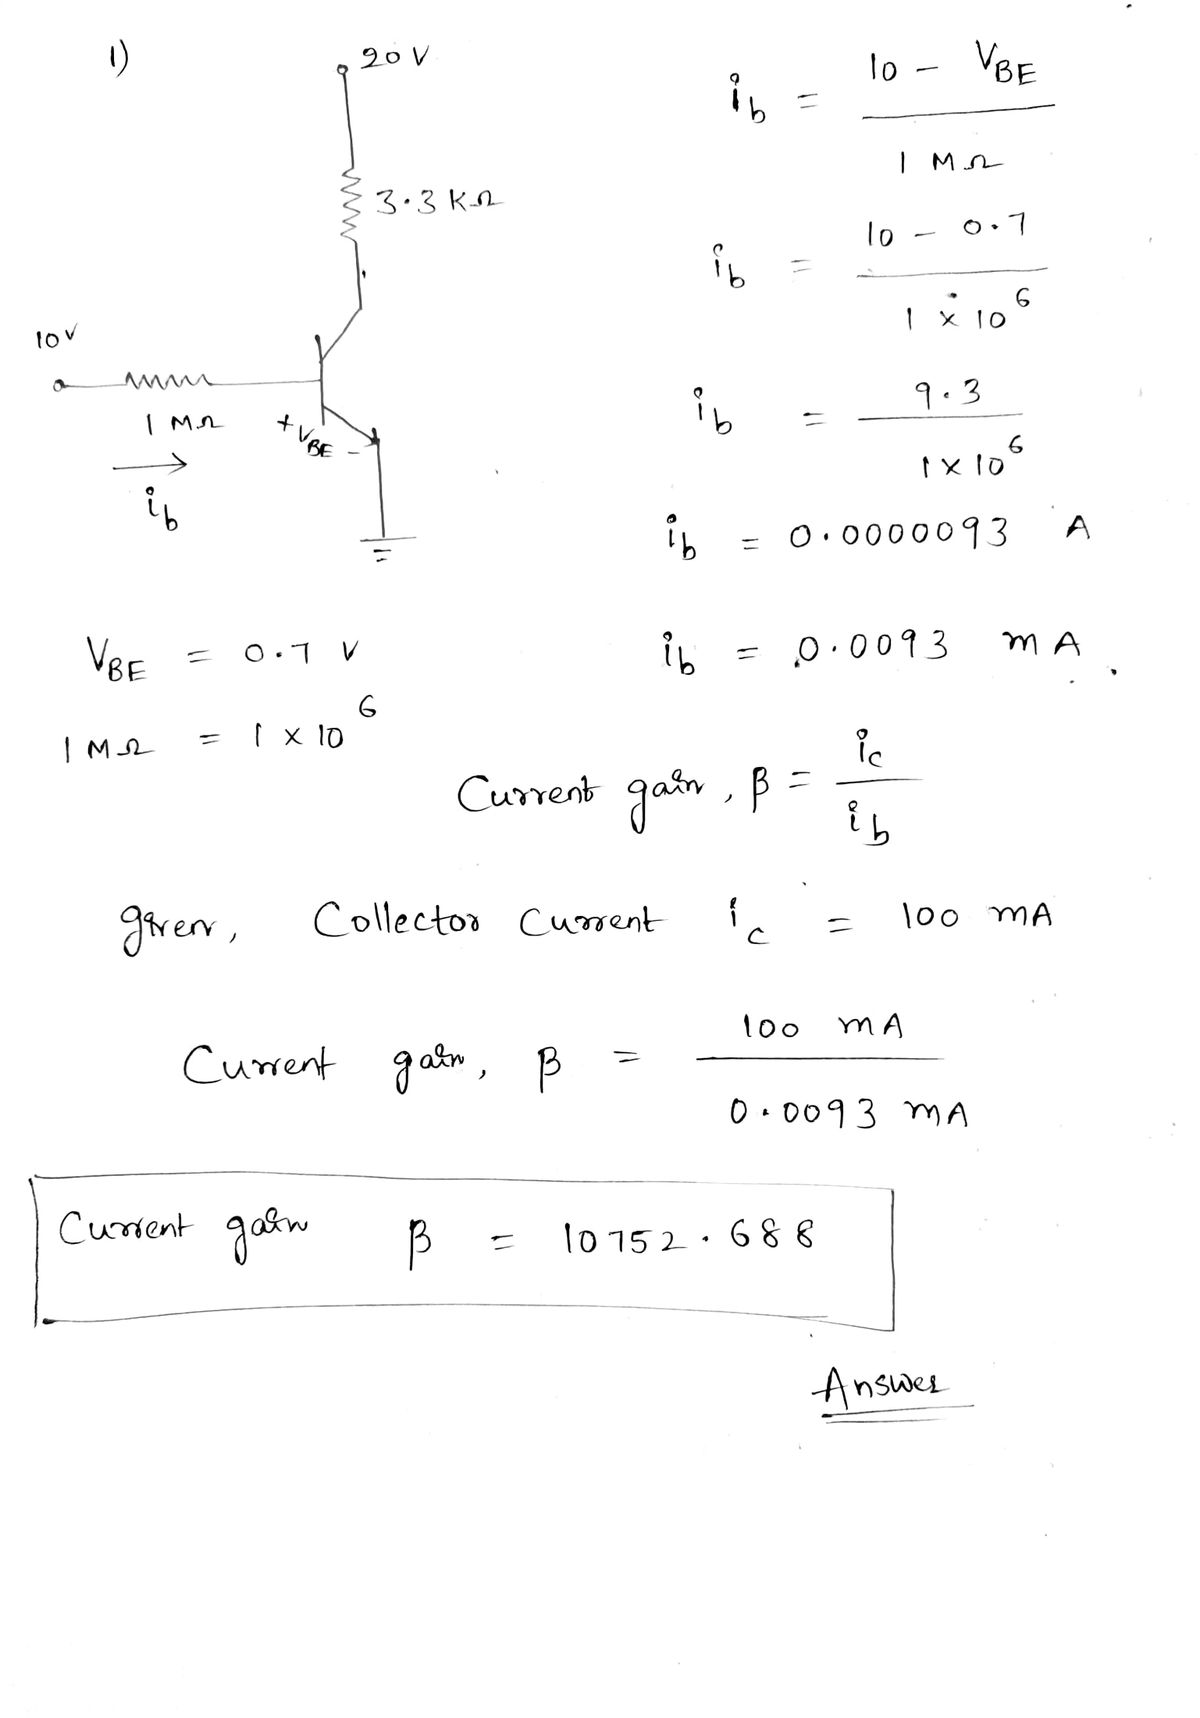 1)
20 V
3.3 KΩ
10 V
1 MΩ
+ VBE -
ib
VBE = 0.7 V
1 MΩ = 1 × 10^6
ib = (10 - VBE) / 1 MΩ
ib = (10 - 0.7) / 1 × 10^6
ib = 9.3 / 1 × 10^6
ib = 0.0000093 A
ib = 0.0093 mA.
Current gain, β = ic / ib
given, Collector Current ic = 100 mA
Current gain, β = 100 mA / 0.0093 mA
Current gain β = 10752.688
Answer